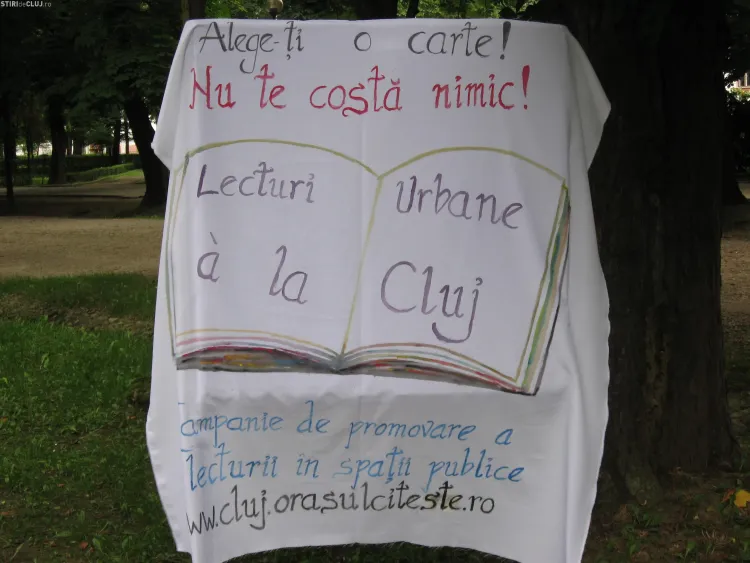 STIRIdeCLUJ.ro
Alege-ți o carte!
Nu te costă nimic!
Lecturi Urbane
à la Cluj
campanie de promovare a
lecturii în spații publice
ww.cluj.orasulciteste.ro